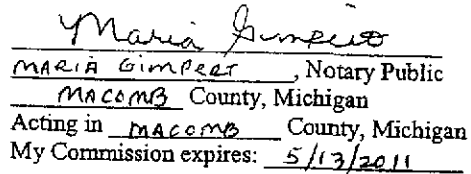 Maria Gimpert
MARIA GIMPERT, Notary Public
MACOMB County, Michigan
Acting in MACOMB County, Michigan
My Commission expires: 5/13/2011